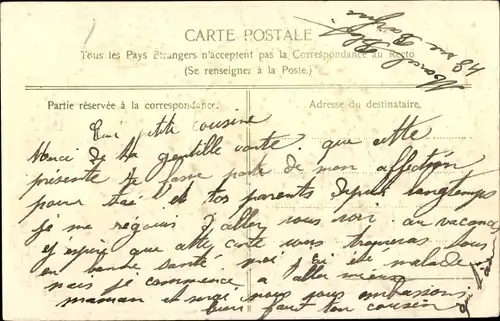 CARTE POSTALE
Tous les Pays Étrangers n'acceptent pas la Correspondance au Recto
(Se renseigner à la Poste.)
Partie réservée à la correspondance.
Adresse du destinataire.
petite cousine
Merci de ta gentille carte. que cette
présente te fasse parte de mon affection
pour toi et tos parents depuis longtemps
je me réjouis d'aller vous voir. au vacances
et espère que cette carte vous trouveras tous
en bonne santé moi été malade
mais je commence a aller mieux
maman et nous vous embrassons
bien fort ton cousin
48 rue